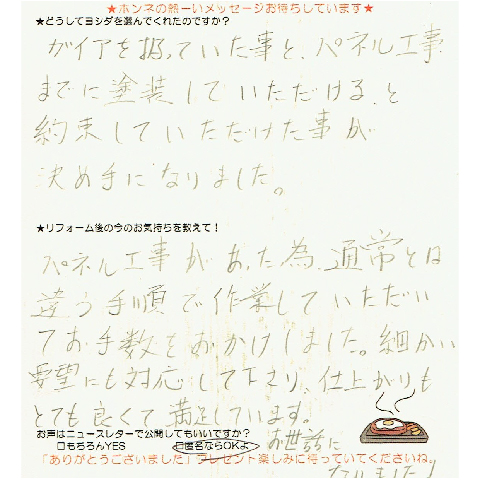 ★ホンネの熱ーいメッセージお待ちしています★
★どうしてヨシダを選んでくれたのですか？
ガイアを扱っていた事と、パネル工事
までに塗装していただける、と
約束していただけた事が
決め手になりました。
★リフォーム後の今のお気持ちを教えて！
パネル工事があった為、通常とは
違う手順で作業していただい
てお手数をおかけしました。細かい
要望にも対応して下さり、仕上がりも
とても良くて満足しています。
お世話に
なりました！
お声はニュースレターで公開してもいいですか？
□もちろんYES □匿名ならOKよ
「ありがとうございました」プレゼント楽しみに待っていてくださいね。